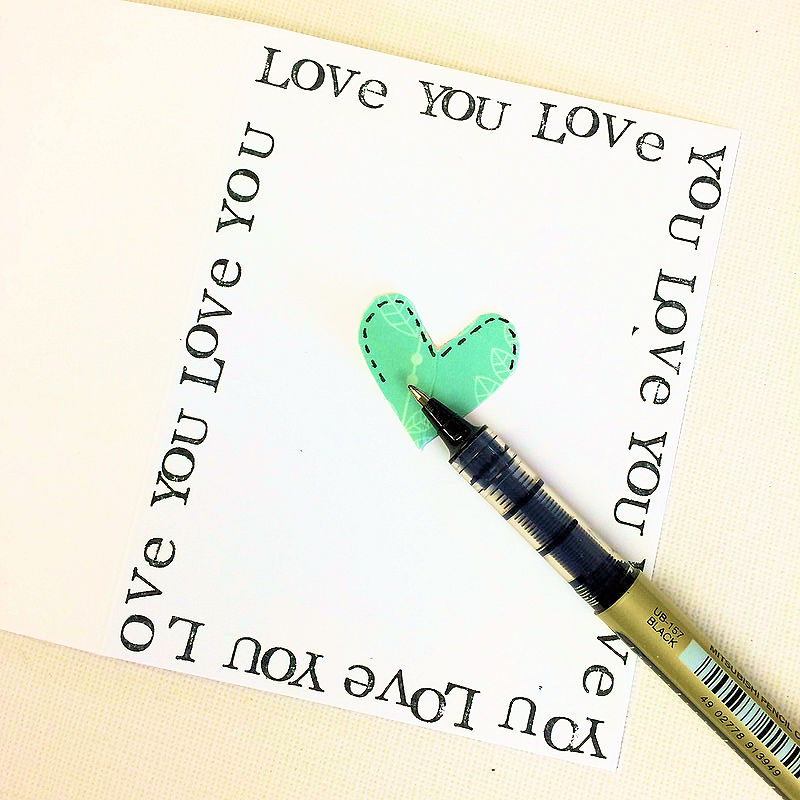 LOVe YOU LOVe
YOU LOVe YOU
ve
YOU LOVe YOU L
Ove YOU LOVe YOU
UB-157
BLACK
MITSUBISHI PENCIL
49 02778 913949